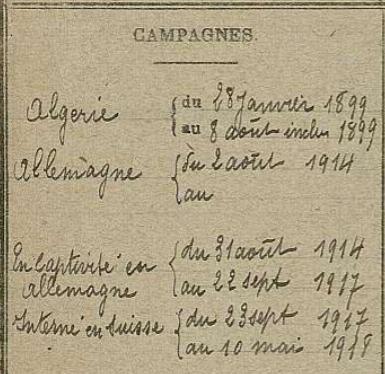 CAMPAGNES.
Algerie { du 28 Janvier 1899
au 8 août inclus 1899
Allemagne { du 2 août 1914
au
En Captivité en { du 31 août 1914
allemagne au 22 sept 1917
Interné en Suisse { du 23 sept 1917
au 10 mai 1918